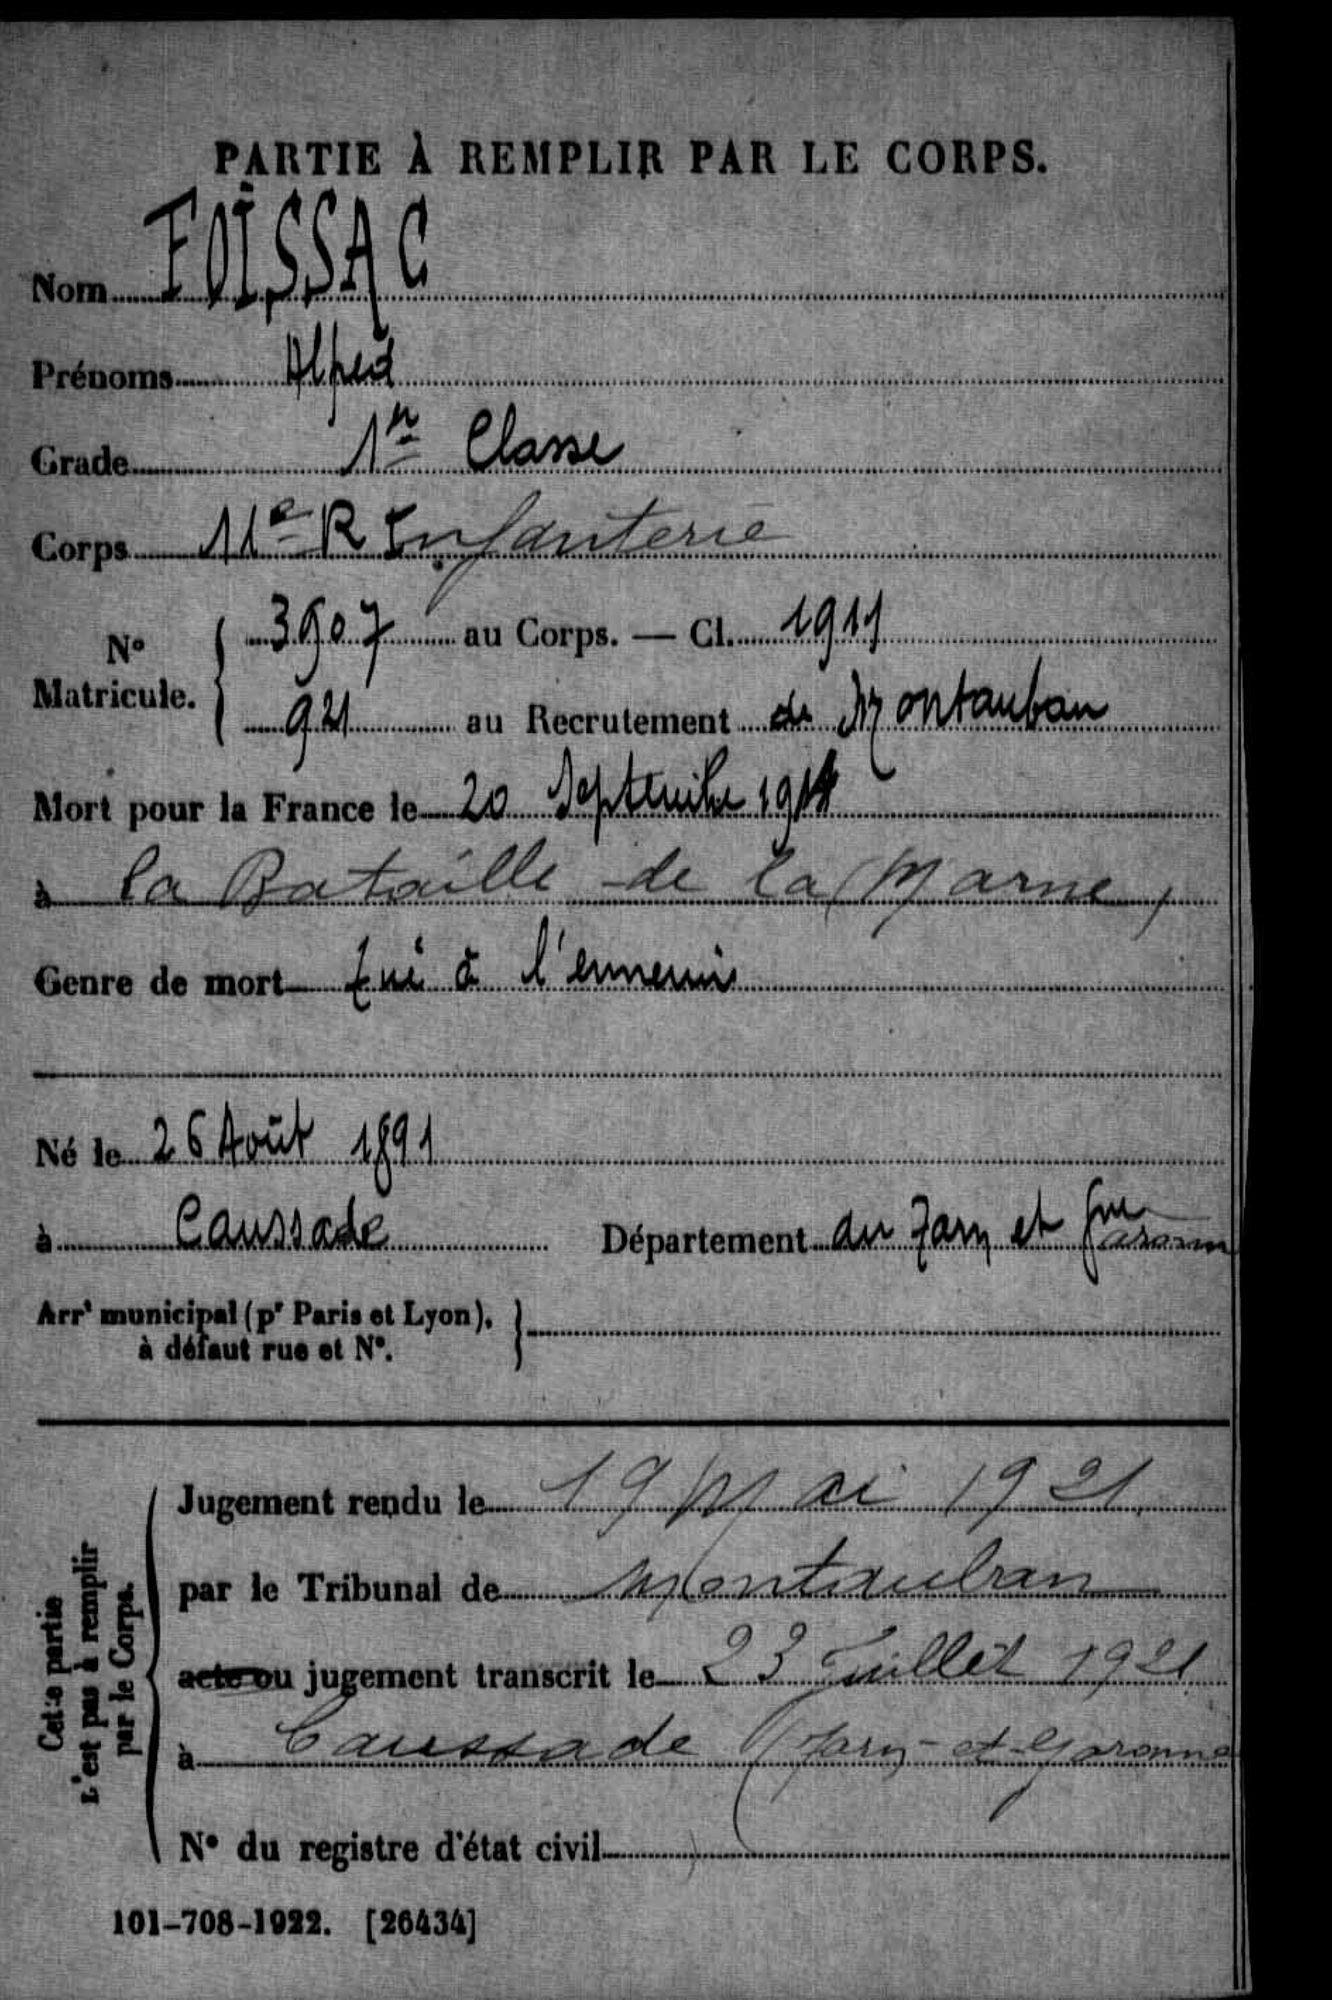 PARTIE À REMPLIR PAR LE CORPS.
Nom FOÏSSAC
Prénoms Alfred
Grade 1re Classe
Corps 11e R Infanterie
No Matricule. { 3907 au Corps. — Cl. 1911
921 au Recrutement de Montauban
Mort pour la France le 20 Septembre 1914
à la Bataille de la Marne,
Genre de mort tué à l'ennemi
Né le 26 Août 1891
à Caussade Département du Tarn et Garonne
Arrt municipal (pr Paris et Lyon), }
à défaut rue et No.
Cette partie
n'est pas à remplir
par le Corps.
Jugement rendu le 19 Mai 1921
par le Tribunal de Montauban
acte ou jugement transcrit le 23 Juillet 1921
à Caussade (Tarn-et-Garonne
No du registre d'état civil
101-708-1922. [26434]